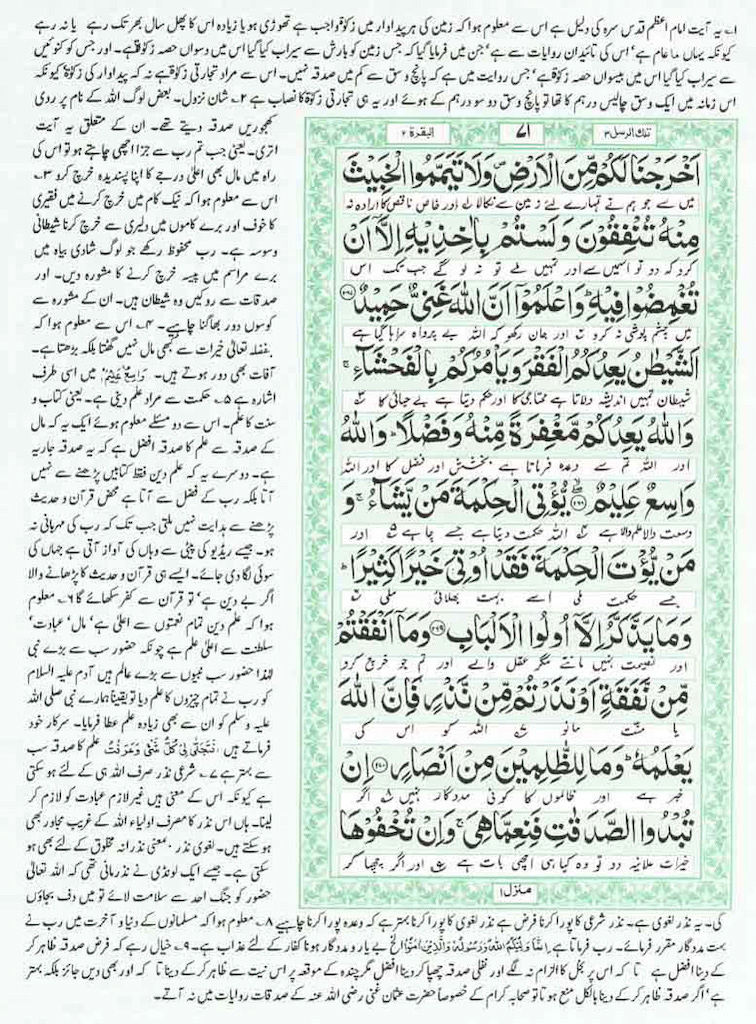 ۱؎ یہ آیت امام اعظم قدس سرہ کی دلیل ہے اس سے معلوم ہوا کہ زمین کی ہر پیداوار میں زکوٰۃ واجب ہے تھوڑی ہو یا زیادہ اس کا پھل سال بھر تک رہے یا نہ رہے
کیونکہ یہاں ما عام ہے' اس کی تائید ان روایات سے ہے' جن میں فرمایا گیا کہ جس زمین کو بارش سے سیراب کیا گیا اس میں دسواں حصہ زکوٰۃ ہے۔ اور جس کو کنوئیں
سے سیراب کیا گیا اس میں بیسواں حصہ زکوٰۃ ہے' جس روایت میں ہے کہ پانچ وسق سے کم میں صدقہ نہیں۔ اس سے مراد تجارتی زکوٰۃ ہے نہ کہ پیداوار کی زکوٰۃ کیونکہ
اس زمانہ میں ایک وسق چالیس درہم کا تھا تو پانچ وسق دو سو درہم کے ہوئے اور یہ ہی تجارتی زکوٰۃ کا نصاب ہے ۲؎ شان نزول۔ بعض لوگ اللہ کے نام پر روی
کھجوریں صدقہ دیتے تھے۔ ان کے متعلق یہ آیت
اتری۔ یعنی جب تم رب سے جزا اچھی چاہتے ہو تو اس کی
راہ میں مال بھی اعلیٰ درجے کا اپنا پسندیدہ خرچ کرو ۳؎
اس سے معلوم ہوا کہ نیک کام میں خرچ کرنے میں فقیری
کا خوف اور برے کاموں میں دلیری سے خرچ کرنا شیطانی
وسوسہ ہے۔ رب محفوظ رکھے جو لوگ شادی بیاہ میں
برے مراسم میں پیسہ خرچ کرنے کا مشورہ دیں۔ اور
صدقات سے روکیں وہ شیطان ہیں۔ ان کے مشورہ سے
کوسوں دور بھاگنا چاہیے۔ ۴؎ اس سے معلوم ہوا کہ
بفضلہ تعالیٰ خیرات سے کبھی مال نہیں گھٹتا بلکہ بڑھتا ہے۔
آفات بھی دور ہوتے ہیں۔ وَاسِعٌ عَلِیْمٌ میں اسی طرف
اشارہ ہے ۵؎ حکمت سے مراد علم دینی ہے۔ یعنی کتاب و
سنت کا علم۔ اس سے دو مسئلے معلوم ہوئے ایک یہ کہ مال
کے صدقہ سے علم کا صدقہ افضل ہے کہ یہ صدقہ جاریہ
ہے۔ دوسرے یہ کہ علم دین فقط کتابیں پڑھنے سے نہیں
آتا بلکہ رب کے فضل سے آتا ہے محض قرآن و حدیث
پڑھنے سے ہدایت نہیں ملتی جب تک کہ رب کی مہربانی نہ
ہو۔ جیسے ریڈیو کی پیٹی سے وہاں کی آواز آتی ہے جہاں کی
سوئی لگا دی جائے۔ ایسے ہی قرآن و حدیث کا پڑھانے والا
اگر بے دین ہے' تو قرآن سے کفر سکھائے گا ۶؎ معلوم
ہوا کہ علم دین تمام نعمتوں سے اعلیٰ ہے' مال' عبادت'
سلطنت سے اعلیٰ علم ہے چونکہ حضور سب سے بڑے نبی
لہٰذا حضور سب نبیوں سے بڑے عالم ہیں آدم علیہ السلام
کو رب نے تمام چیزوں کا علم دیا تو یقیناً ہمارے نبی صلی اللہ
علیہ وسلم کو ان سے بھی زیادہ علم عطا فرمایا۔ سرکار خود
فرماتے ہیں فَتَجَلّٰی لِیْ کُلُّ شَیْءٍ وَعَرَفْتُ علم کا صدقہ سب
سے بہتر ہے ۷؎ شرعی نذر صرف اللہ ہی کے لئے ہو سکتی
ہے کیونکہ اس کے معنی ہیں غیر لازم عبادت کو لازم کر
لینا۔ ہاں اس نذر کا مصرف اولیاء اللہ کے غریب مجاور بھی
ہو سکتے ہیں۔ لغوی نذر بمعنی نذرانہ مخلوق کے لئے بھی ہو
سکتی ہے۔ جیسے ایک لونڈی نے نذر مانی تھی کہ اللہ تعالیٰ
حضور کو جنگ احد سے سلامت لائے تو میں دف بجاؤں
تلك الرسل ۳ ۷۱ البقرة ۲
اَخْرَجْنَا لَكُمْ مِّنَ الْاَرْضِ وَلَا تَيَمَّمُوا الْخَبِيْثَ
میں سے جو ہم نے تمہارے لئے زمین سے نکالا اور خاص ناقص کا ارادہ نہ
مِنْهُ تُنْفِقُوْنَ وَلَسْتُمْ بِاٰخِذِيْهِ اِلَّاۤ اَنْ
کرو کہ دو تو اسمیں سے اور تمہیں ملے تو نہ لو گے جب تک اس
تُغْمِضُوْا فِيْهِ وَاعْلَمُوْۤا اَنَّ اللّٰهَ غَنِيٌّ حَمِيْدٌ ۲۶۷
میں چشم پوشی نہ کرو اور جان رکھو کہ اللہ بے پرواہ سراہا گیا ہے
اَلشَّيْطٰنُ يَعِدُكُمُ الْفَقْرَ وَيَاْمُرُكُمْ بِالْفَحْشَآءِ
شیطان تمہیں اندیشہ دلاتا ہے محتاجی کا اور حکم دیتا ہے بے حیائی کا
وَاللّٰهُ يَعِدُكُمْ مَّغْفِرَةً مِّنْهُ وَفَضْلًا وَاللّٰهُ
اور اللہ تم سے وعدہ فرماتا ہے بخشش اور فضل کا اور اللہ
وَاسِعٌ عَلِيْمٌ ۲۶۸ يُّؤْتِي الْحِكْمَةَ مَنْ يَّشَآءُ وَ
وسعت والا علم والا ہے ۴؎ اللہ حکمت دیتا ہے جسے چاہے ۵؎ اور
مَنْ يُّؤْتَ الْحِكْمَةَ فَقَدْ اُوْتِيَ خَيْرًا كَثِيْرًا
جسے حکمت ملی اسے بہت بھلائی ملی ۶؎
وَمَا يَذَّكَّرُ اِلَّاۤ اُولُوا الْاَلْبَابِ ۲۶۹ وَمَاۤ اَنْفَقْتُمْ
اور نصیحت نہیں مانتے مگر عقل والے اور تم جو خرچ کرو
مِّنْ نَّفَقَةٍ اَوْ نَذَرْتُمْ مِّنْ نَّذْرٍ فَاِنَّ اللّٰهَ
یا منت مانو ۷؎ اللہ کو اس کی
يَعْلَمُهٗ وَمَا لِلظّٰلِمِيْنَ مِنْ اَنْصَارٍ ۲۷۰ اِنْ
خبر ہے اور ظالموں کا کوئی مددگار نہیں ۸؎ اگر
تُبْدُوا الصَّدَقٰتِ فَنِعِمَّا هِيَ وَاِنْ تُخْفُوْهَا
خیرات علانیہ دو تو وہ کیا ہی اچھی بات ہے ۹؎ اور اگر چھپا کر
منزل ۱
گی۔ یہ نذر لغوی ہے۔ نذر شرعی کا پورا کرنا فرض ہے نذر لغوی کا پورا کرنا بہتر ہے کہ وعدہ پورا کرنا چاہیے ۸؎ معلوم ہوا کہ مسلمانوں کے دنیا و آخرت میں رب نے
بہت مددگار مقرر فرمائے۔ رب فرماتا ہے اِنَّمَا وَلِیُّکُمُ اللّٰہُ وَرَسُوْلُہٗ وَالَّذِیْنَ اٰمَنُوْا الخ بے یار و مددگار ہونا کفار کے لئے عذاب ہے۔ ۹؎ خیال رہے کہ فرض صدقہ ظاہر کر
کے دینا افضل ہے تا کہ اس پر بخل کا الزام نہ لگے اور نفلی صدقہ چھپا کر دینا افضل مگر چندہ کے موقعہ پر اس نیت سے ظاہر کر کے دینا تا کہ اور بھی دیں جائز بلکہ بہتر
ہے' اگر صدقہ ظاہر کر کے دینا بالکل منع ہوتا تو صحابہ کرام کے خصوصاً حضرت عثمان غنی رضی اللہ عنہ کے صدقات روایات میں نہ آتے۔